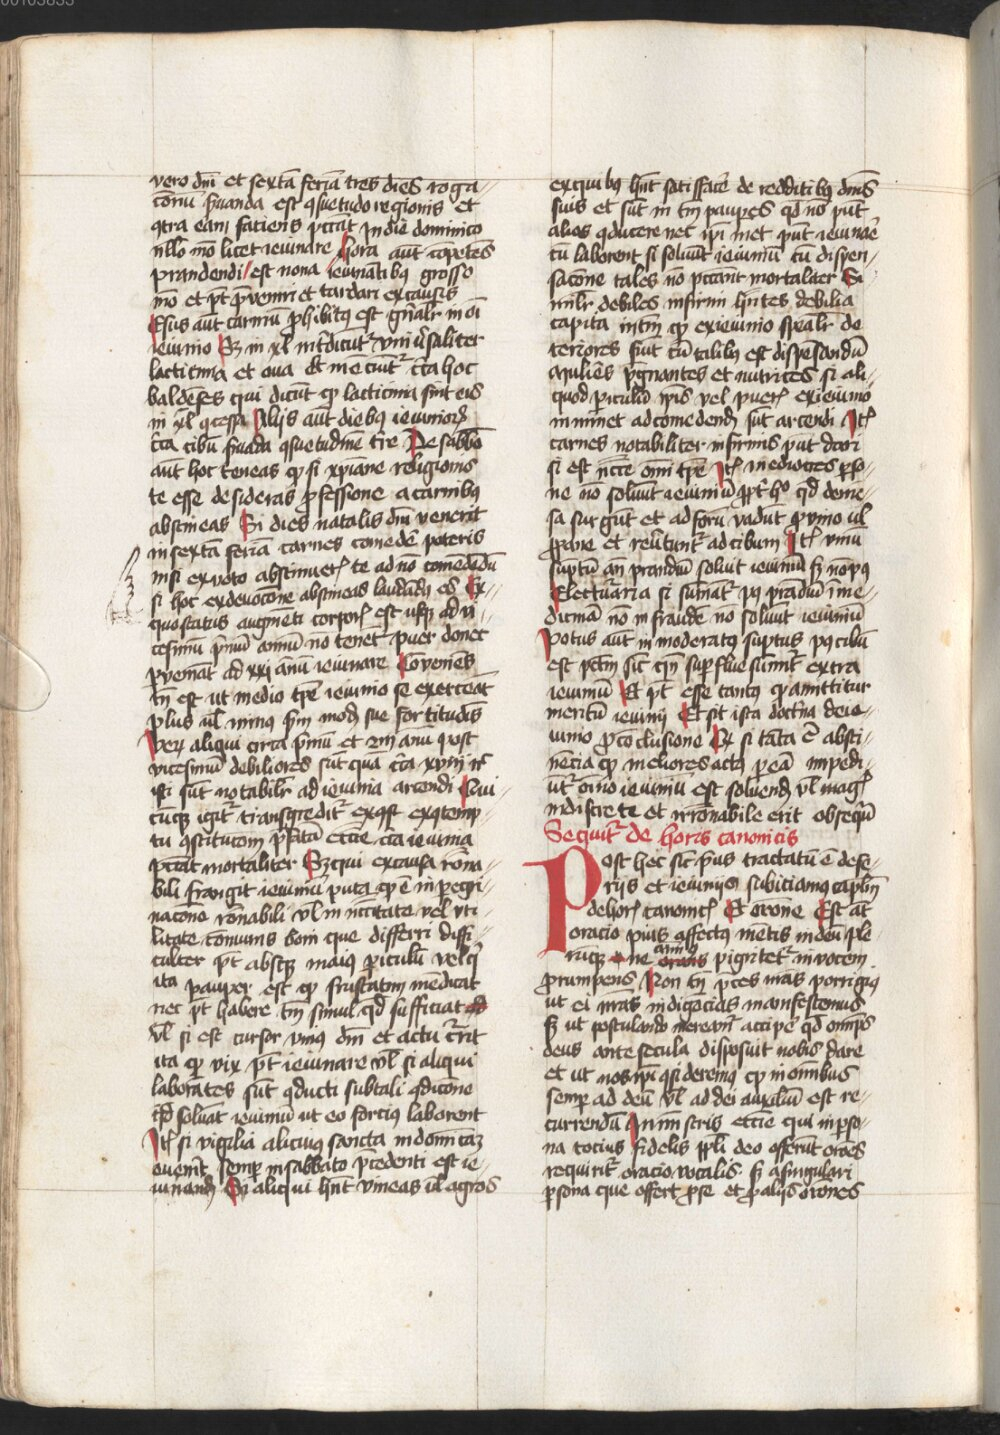 vero dn̄i et sextā feriā tres dies roga-
cionū ẜuanda est ꝯsuetudo regionis et
ꝯtra eam faciens pctāt In die dominico
nllo mo licet ieiunare Hora aut̄ cōpetēs
prandendi est nona ieiunātibꝰ grosso
mō et pt̄ p̄veniri et tardari ex causis
Esus aut̄ carniū ꝓhibitꝰ est gn̄alr̄ in oī
ieiunio Sꝫ in xl int̄dicūtᷣ vniūsaliter
lacticinia et oua
baldēses qui dicūt ꝙ lacticinia sint eis
in xl ꝯcessa Alijs aut̄ diebꝰ ieiunioꝝ
cͥca cibū ẜuāda ꝯsuetudinē tr̄re De sabbō
aut̄ hoc teneas ꝙ si xp̄iane religionis
te esse desideras ꝓfessione a carnibꝰ
abstineas Si dies natalis dn̄i venerit
in sextā feriā carnes comedē poteris
nisi ex voto abstinueꝝ te ad nō comedēdū
si hoc ex deuocōne abstineas laudādꝰ es Ex
quo status augmēti corpoꝝ est usqꝫ ad vi-
cesimū pͥmū annū nō tenetᷣ puer donec
ꝑveniat ad xxi annū ieiunare Cōueniēs
tn̄ est ut medio tꝑe ieiunio se exerceāt
plus ul̄ minus ẜm modū sue fortitudīs
Veꝝ aliqui circa pͥmū et 2m annū post
vicesimū debiliores sūt quā cͥca xviij
isti sūt notabilr̄ ad ieiunia arcendi Qui-
cūqꝫ igit̄ transgreditᷣ
tu ꝯstitucōm p̄fatā eccīe cͥca ieiunia
pctāt mortaliter Sꝫ qui ex causa rōna-
bili frangit ieiuniū puta ꝙ ē in ꝑegri-
nacōne rōnabili vl̄ in nccītate vel vti-
litate cōmunis boni que differri diffi-
culter pt̄ absqꝫ maiꝰ periculū
ita pauper est ꝙ frustatim mēdicat
nec pt̄ habere tm̄ simul qd̄ sufficiat
vl̄ si est cursor vniꝰ dn̄i et actu c̄rit
ita ꝙ vix pt̄ ieiunare vl̄ si aliqui
laborātes sūt ꝯducti sub tali ꝯdicōne
ꝙ soluāt ieiuniū ut eo forciꝰ laborent
Itē si vigilia alicuiꝰ sancti in dominicā
euenit̄ semꝑ in sabbato p̄cedenti est ie-
iunandū Sꝫ aliqui hn̄t vineas ul̄ agros
ex quibꝰ hn̄t satisfacē de redditibꝰ dn̄is
suis et sūt in tm̄ pauꝑes qd̄ nō pn̄t
alios ꝯducere nec ip̄i met pn̄t ieiunāe
cū laborent si soluūt ieiuniū cū dispen-
sacōne tales nō pctānt mortaliter Si
milr̄ debiles infirmi hn̄tes debilia
capita intm̄ ꝙ ex ieiunio spēalr̄ de
teriores fiūt cū talibꝰ est dispēsandū
Mulieres p̄gnantes et nutrices si ali-
quod ꝑiculū ip̄is vel pueꝝ ex ieiunio
imminet ad comedendū sūt arcendi Itē
carnes notabiliter infirmis pn̄t dari
si est nccē om̄i tꝑe Itē mediocres ꝑso-
ne nō soluūt ieiuniū ꝓpt̄ hoc qd̄ de me-
sa surgūt et ad forū vadūt ꝓ vino ul̄
ꝓ pane et reūtuntᷣ ad cibum Itē vinū
sūptū an̄ prandiū soluit ieiuniū sꝫ nō pꝰ
Electuaria si sumātᷣ pꝰ prādiū ī me-
dicinā nō in fraudē nō soluūt ieiuniū
Potus aut̄ inmoderatꝰ sūptus pꝰ cibū
est pctm̄ sic̄ cū suꝑflue sumitᷣ extra
ieiuniū Et pt̄ esse tantꝰ ꝙ amittitur
meritū ieiunij Et sit ista doctͥna de ie-
iunio ꝓ cōclusione Ex si tāta ē absti-
nēcia ꝙ meliores actꝰ ꝑ eā impedi-
ūtᷣ oīno ieiuniū est soluendū vl̄ magꝭ
indiscrete et irrōnabile erit obsequiū
Sequitᷣ de horis canonicis
Post hec sic̄ pͥus tractatū ē de fe-
rijs et ieiunijs subiciamꝰ caplm̄
de horꝭ canonicꝭ Et orōne Est at̄
oracio pius affectus mētis in deū ple
rūqꝫ ne animꝰ pigritetᷣ in vocem
ꝓrumpens Non tn̄ p̄ces nr̄as porrigimꝰ
ut ei nr̄as indigēcias manifestemus
sꝫ ut postulando mereamᷣ accipē qd̄ om̄ps
deus ante secula disposuit nobis dare
et ut nos ip̄i ꝯsideremꝰ ꝙ in omnibus
semꝑ ad deū vl̄ ad dei auxiliū est re-
currendū In minstris eccīe qui in ꝑso-
na tocius fidelis ppl̄i deo offerūt orōes
requiritᷣ oracio vocalis sꝫ a singulari
ꝑsona que offert ꝓ se et ꝓ alijs orōnes